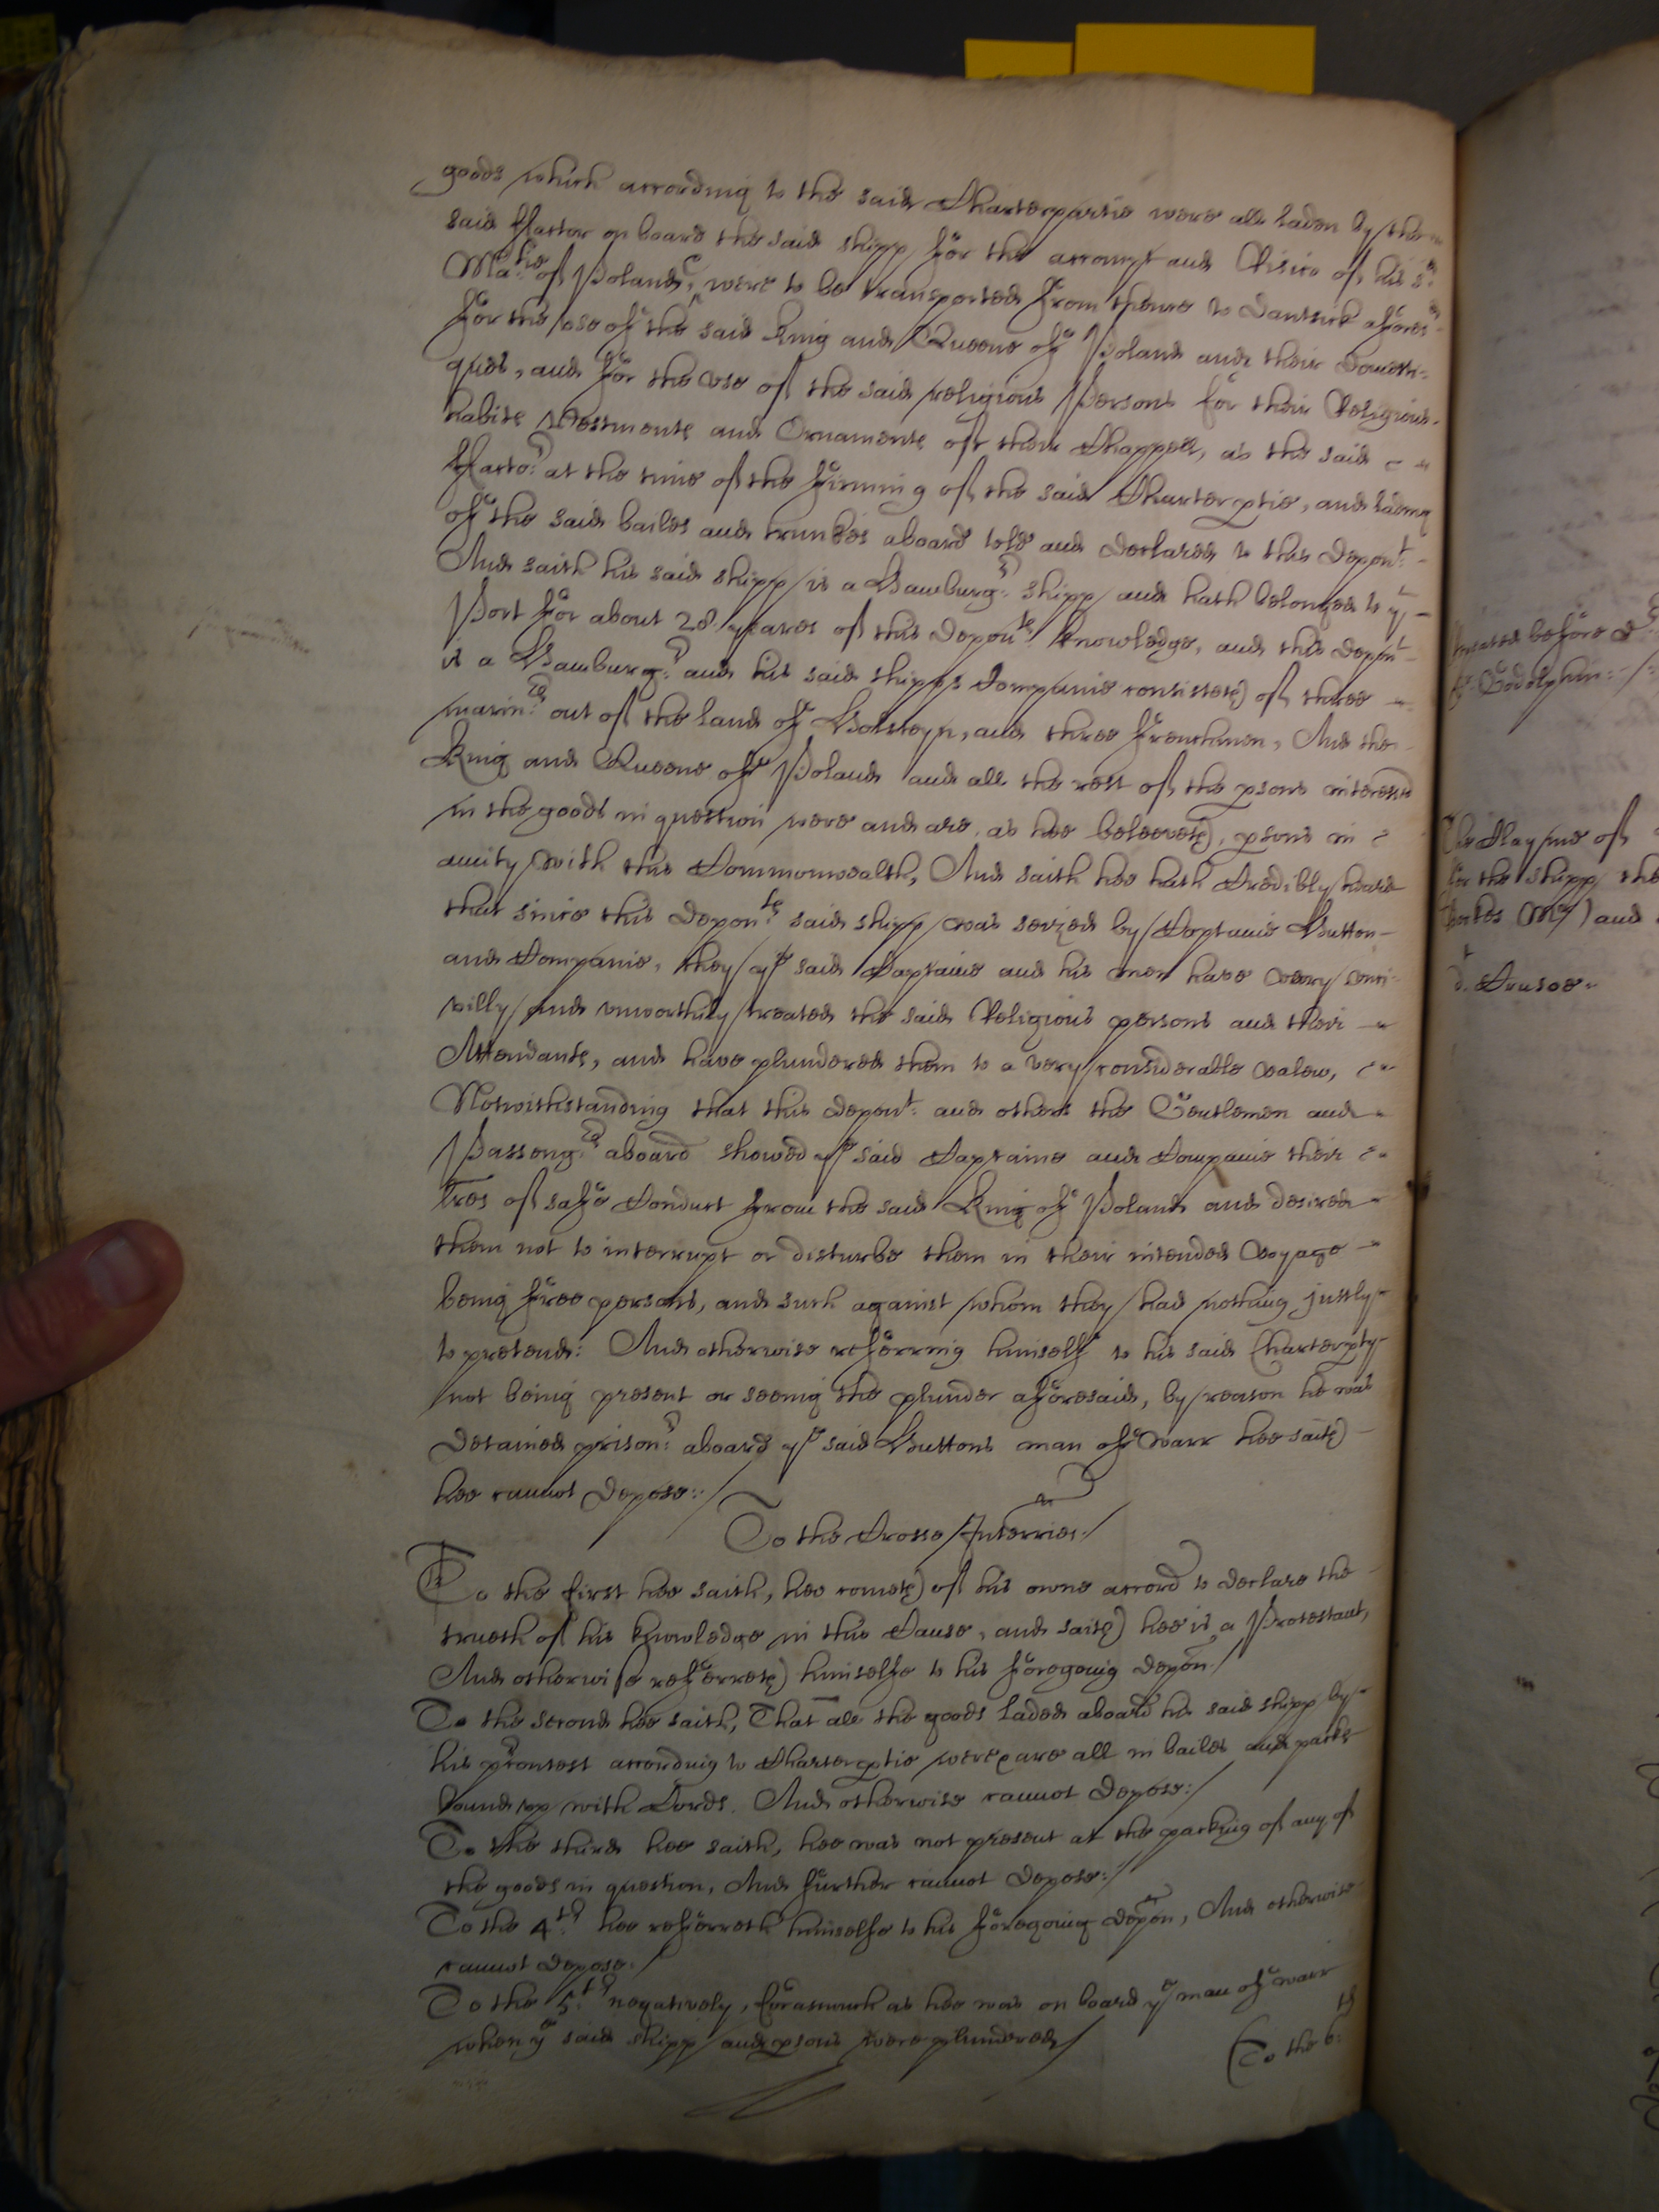 goods which according to the said Charterpartie were all laden by the
said ffactor on board the said shipp for the accompt and Risico of his sd
Matie of Poland, & were to be transported from thence to Dantsick aforesd
for the use of the said King and Queene of Poland and their Domesti-
ques, and for the use of the said religious Persons for their Religious
habits Vestments and Ornaments of their Chappell, as the said
ffactor at the time of the firming of the said Charterptie, and lading
of the said bailes and trunkes aboard told and declared to this Depont
And saith his said shipp is a Hamburgr shipp and hath belonged to yt
Port for about 28 yeares of this Deponts knowledge, and this Depont
is a Hamburgr and his said shipps Companie consisteth of three
marinrs out of the land of Holsteyn, and three frenchmen, And the
King and Queene of Poland and all the rest of the psons interessed
in the goods in question were and are, as hee beleeveth, psons in
amity with this Commonwealth, And saith hee hath Credibly heard
that since this Deponts said shipp was seized by Captaine Hutton
and Companie, they ye said Captaine and his men have very unci-
villy and unworthily treated the said Religious persons and their
Attendants, and have plundered them to a very considerable valew,
Notwithstanding that this Depont and others the Gentlemen and
Passengrs aboard shewed ye said Captaine and Companie their
lres of safe Conduct from the said King of Poland and desired
them not to interrupt or disturbe them in their intended Voyage
being free persons, and such against whom they had nothing justly
to pretend: And otherwise referring himself to his said Charterpty
not being present or seeing the plunder aforesaid, by reason he was
Detained prisonr aboard ye said Huttons man of Warr hee saith
hee cannot Depose:/
To the Crosse Interries./
To the first hee saith, hee cometh of his owne accord to declare the
trueth of his knowledge in this Cause, and saith hee is a Protestant,
And otherwise referreth himselfe to his foregoing depon./
To the second hee saith, That all the goods laded aboard his said shipp by
his contest according to Charterptie were & are all in bailes and packs
bound up with Cords. And otherwise cannot Depose:/
To the third hee saith, hee was not present at the packing of any of
the goods in question, And further cannot Depose:/
To the 4th hee referreth himselfe to his foregoing depon, And otherwise
cannot depose./
To the 5th negatively, forasmuch as hee was on board ye man of warr
when ye said shipp and psons were plundered/
To the 6th
treated before Dr
Godolphin
The Clayme of
for the shipp the
Mr) and
Dr Crusoe